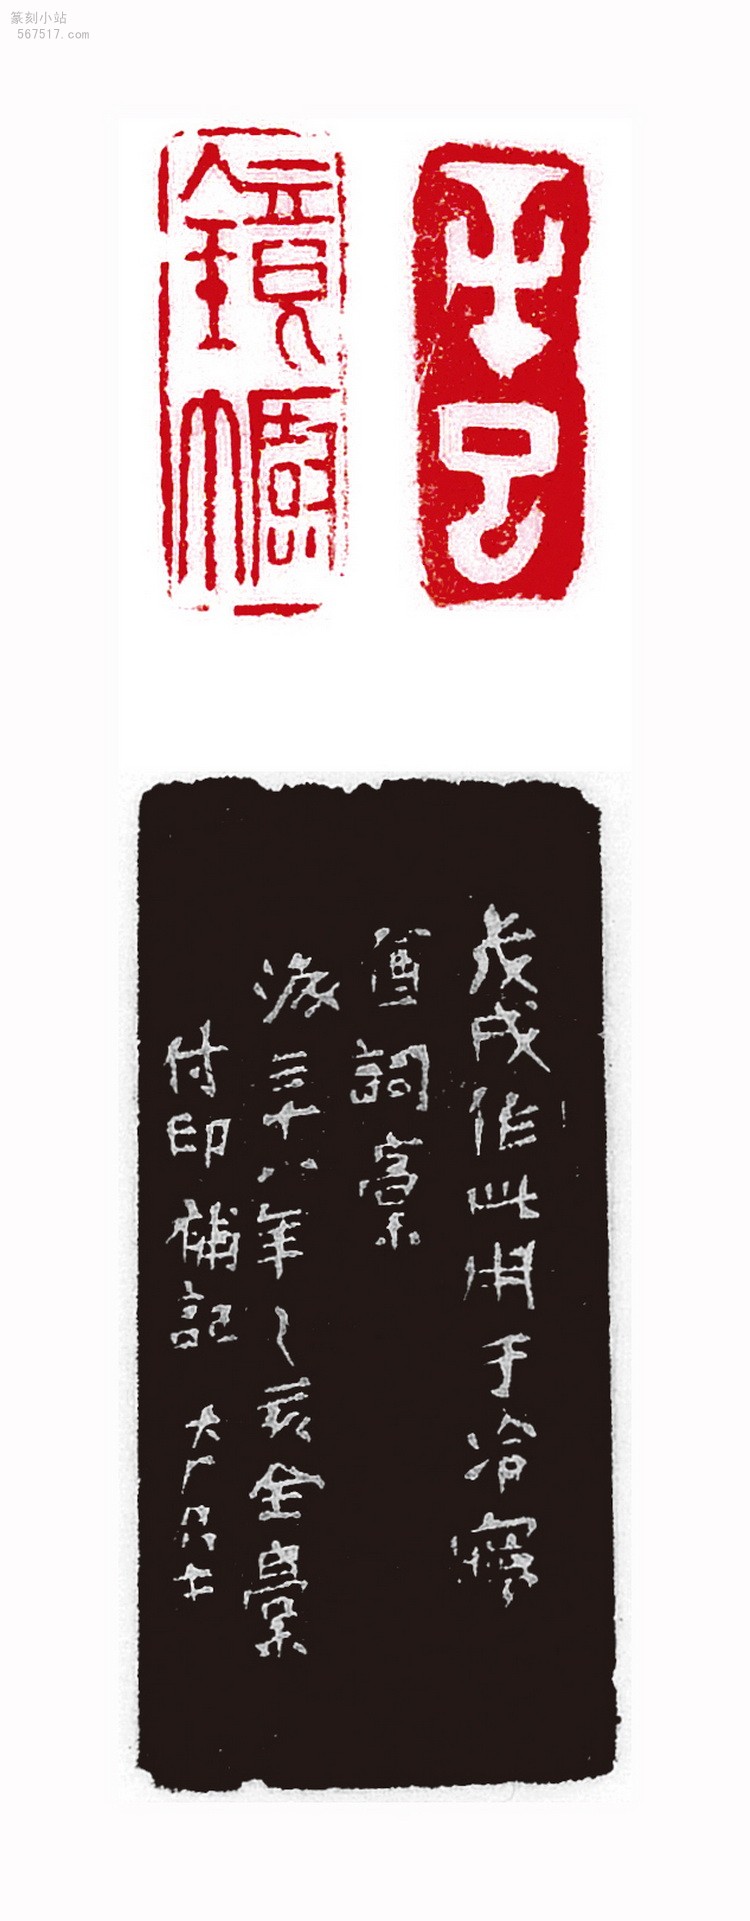 篆刻小站
567517.com
鏡幮
戊戌作此用于冷寱
盦詞稾
後三十八年乙亥全稾
付印補記 大厂居士